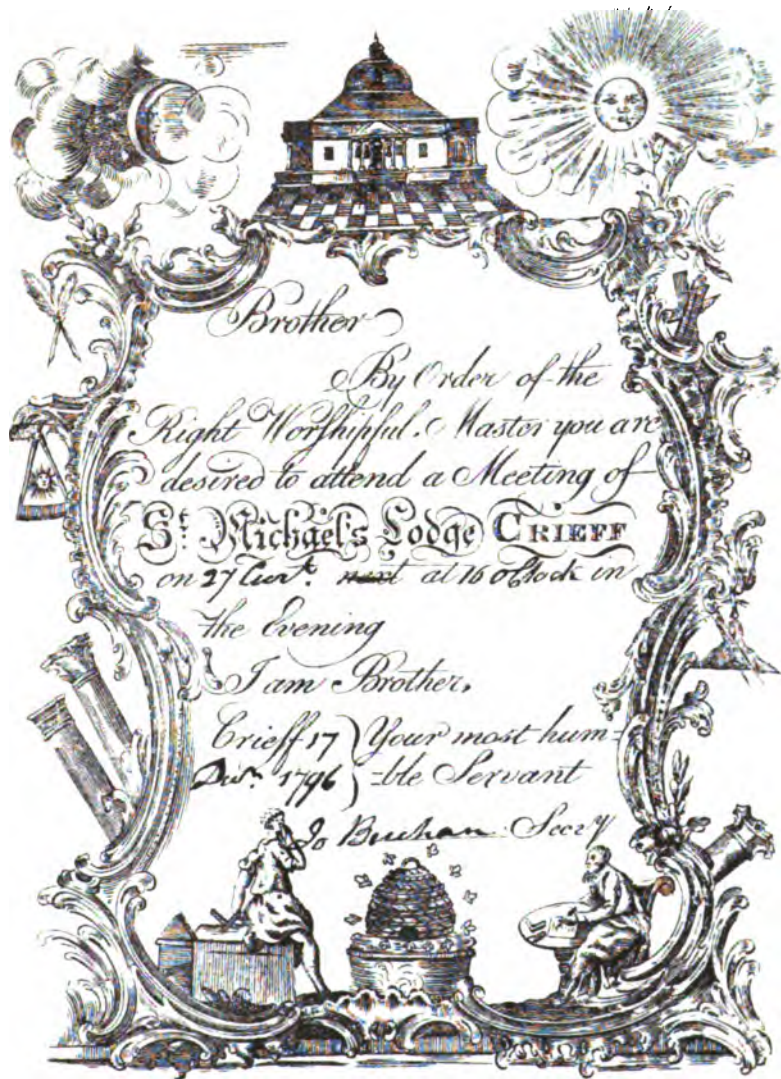 Brother
By Order of the
Right Worshipful Master you are
desired to attend a Meeting of
St. Michael's Lodge CRIEFF
on 27 Curt. next at 10 oClock in
the Evening
I am Brother,
Crieff 17 Your most hum=
Decr. 1796 =ble Servant
Jo Buchan Secry